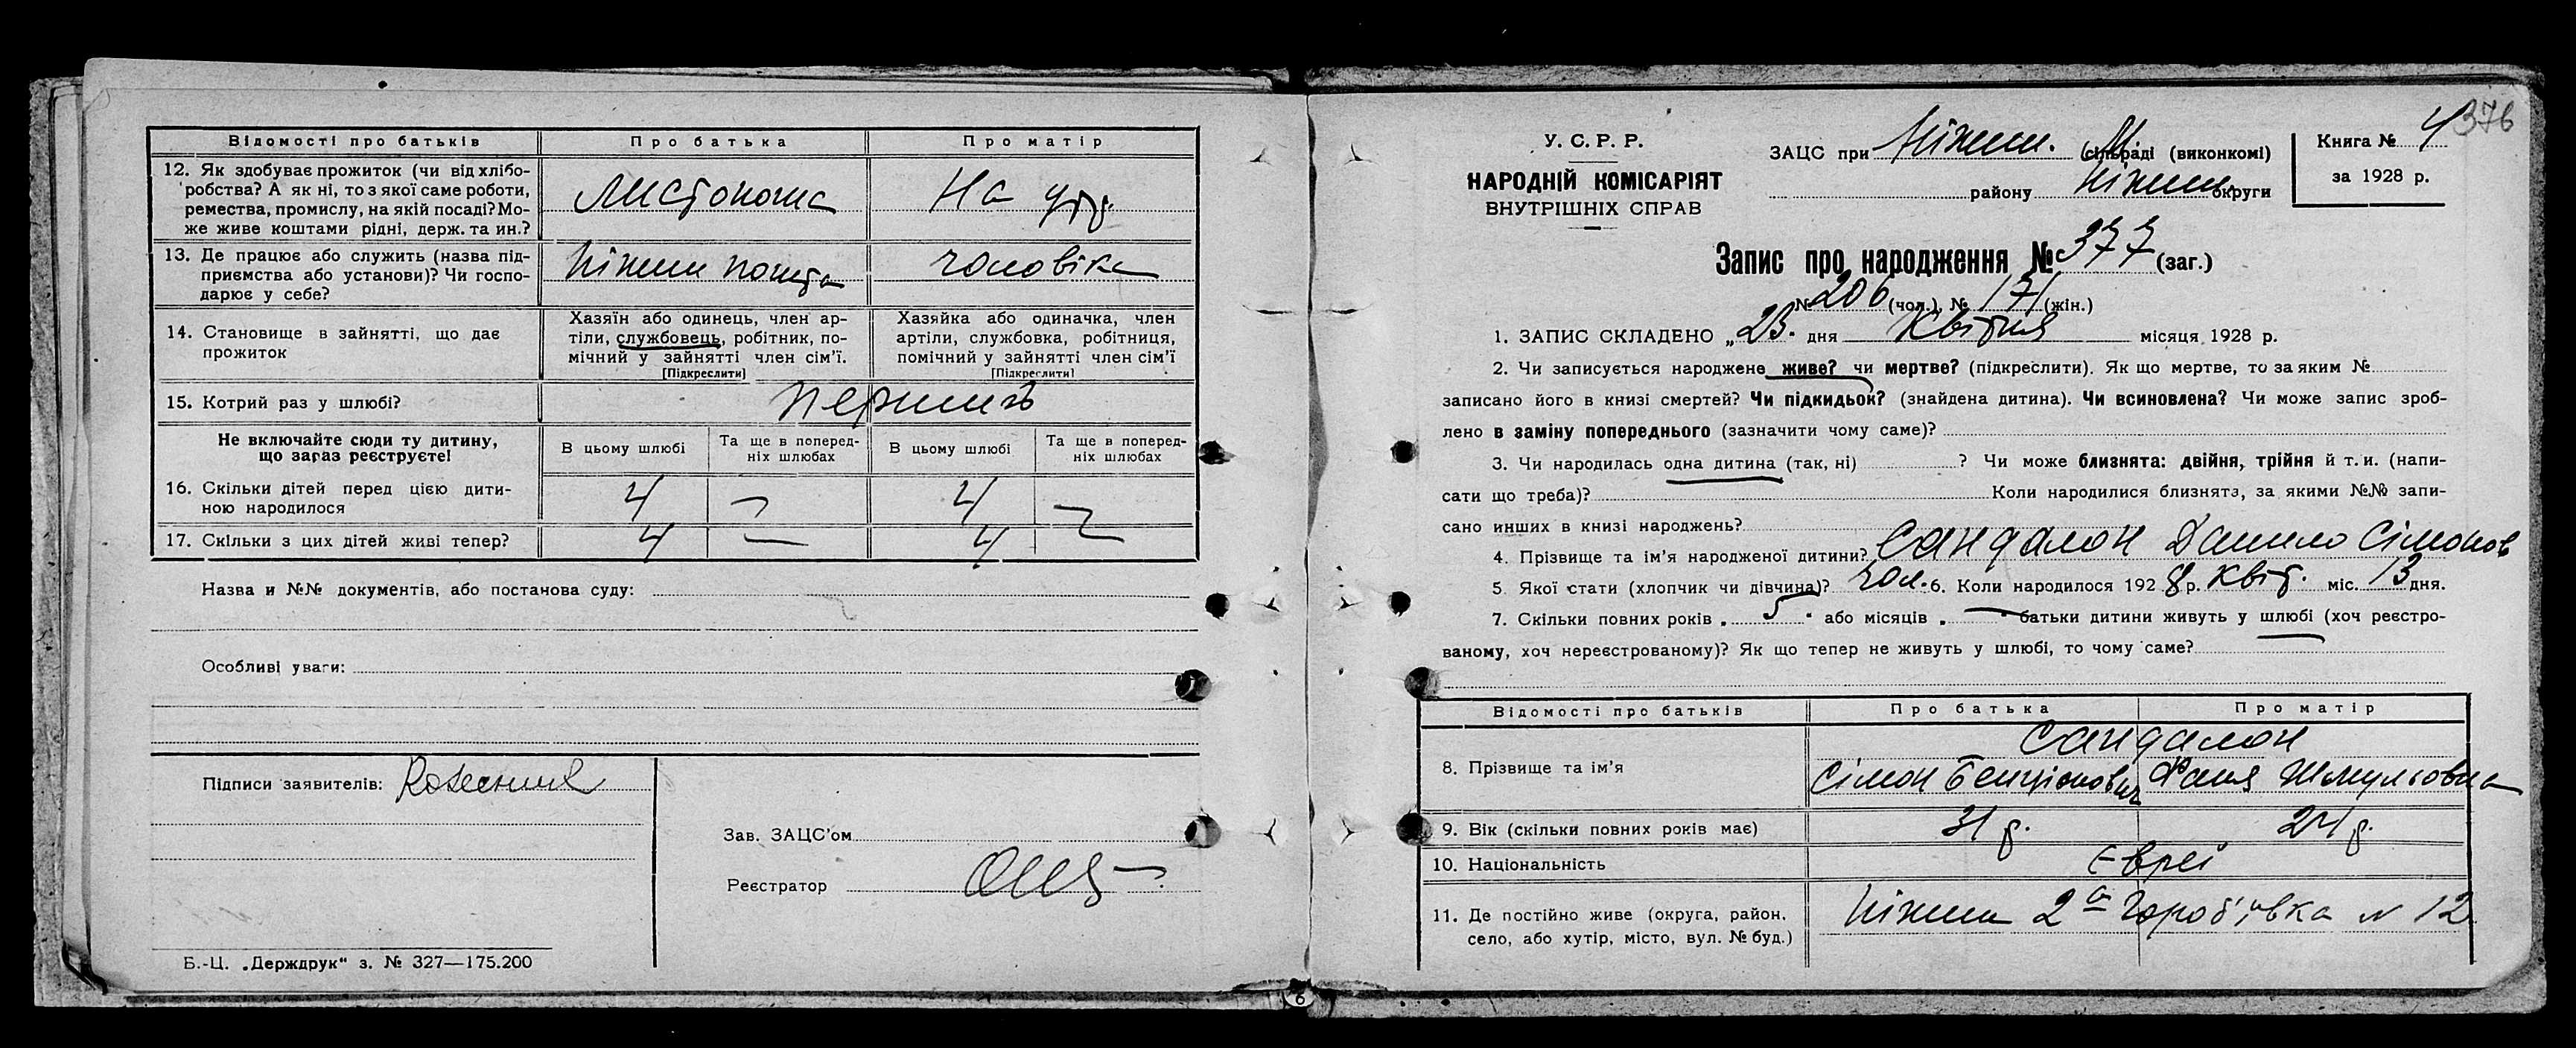 Відомості про батьків Про батька Про матір
12. Як здобуває прожиток (чи від хлібо-
робства? А як ні, то з якої саме роботи,
ремества, промислу, на якій посаді? Мо-
же живе коштами рідні, держ. та ин.?
Листоноша На утр.
13. Де працює або служить (назва під-
приємства або установи)? Чи госпо-
дарює у себе?
Ніжин пошта чоловіка
14. Становище в зайнятті, що дає
прожиток
Хазяїн або одинець, член ар-
тілі, службовець, робітник, по-
мічний у зайнятті член сім'ї.
[Підкреслити]
Хазяйка або одиначка, член
артілі, службовка, робітниця,
помічний у зайнятті член сім'ї
[Підкреслити]
15. Котрий раз у шлюбі?
Не включайте сюди ту дитину,
що зараз реєструєте!
В цьому шлюбі
Та ще в поперед-
ніх шлюбах
В цьому шлюбі
Та ще в поперед-
ніх шлюбах
16. Скільки дітей перед цією дити-
ною народилося
4 — 4 —
17. Скільки з цих дітей живі тепер? 4 — 4 —
Назва и №№ документів, або постанова суду:
Особливі уваги:
Підписи заявителів:
Зав. ЗАЦС'ом
Реєстратор
Б.-Ц. „Держдрук“ з. № 327—175.200
6
376
У. С. Р. Р.
НАРОДНІЙ КОМІСАРІЯТ
ВНУТРІШНІХ СПРАВ
ЗАЦС при Ніжин. М. (сільраді (виконкомі)
району Ніжин. округи
Книга № 4
за 1928 р.
Запис про народження № 377 (заг.)
№ 206 (чол.), № 171 (жін.)
1. ЗАПИС СКЛАДЕНО „23. дня Квітня місяця 1928 р.
2. Чи записується народжене живе? чи мертве? (підкреслити). Як що мертве, то за яким №
записано його в книзі смертей? Чи підкидьок? (знайдена дитина). Чи всиновлена? Чи може запис зроб-
лено в заміну попереднього (зазначити чому саме)?
3. Чи народилась одна дитина (так, ні) ? Чи може близнята: двійня, трійня й т. и. (напи-
сати що треба)? Коли народилися близнята, за якими №№ запи-
сано инших в книзі народжень?
4. Прізвище та ім'я народженої дитини? Сандалон Данило Сімонов
5. Якої стати (хлопчик чи дівчина)? чол. 6. Коли народилося 1928 р. квіт. міс. 13 дня.
7. Скільки повних років „ 5 " або місяців „ — " батьки дитини живуть у шлюбі (хоч реєстро-
ваному, хоч нереєстрованому)? Як що тепер не живуть у шлюбі, то чому саме?
Відомості про батьків Про батька Про матір
Сандалон
8. Прізвище та ім'я Сімон Бенціонович Фаня Шмульовна
9. Вік (скільки повних років має) 31 р. 24 р.
10. Національність Євреї
11. Де постійно живе (округа, район,
село, або хутір, місто, вул. № буд.)
Ніжин 2а N 12